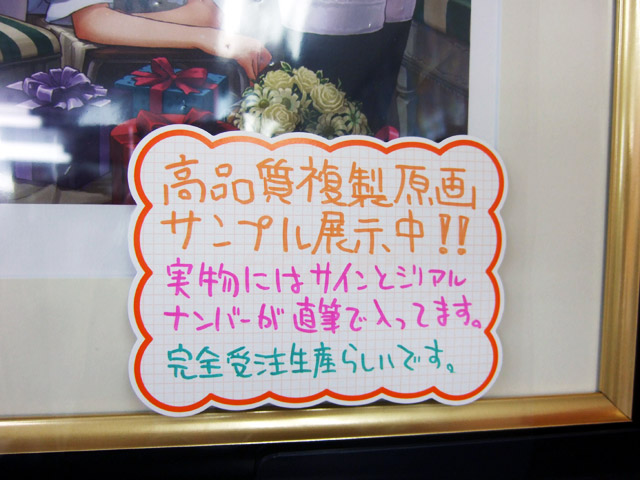 高品質複製原画
サンプル展示中!!
実物にはサインとシリアル
ナンバーが直筆で入ってます。
完全受注生産らしいです。